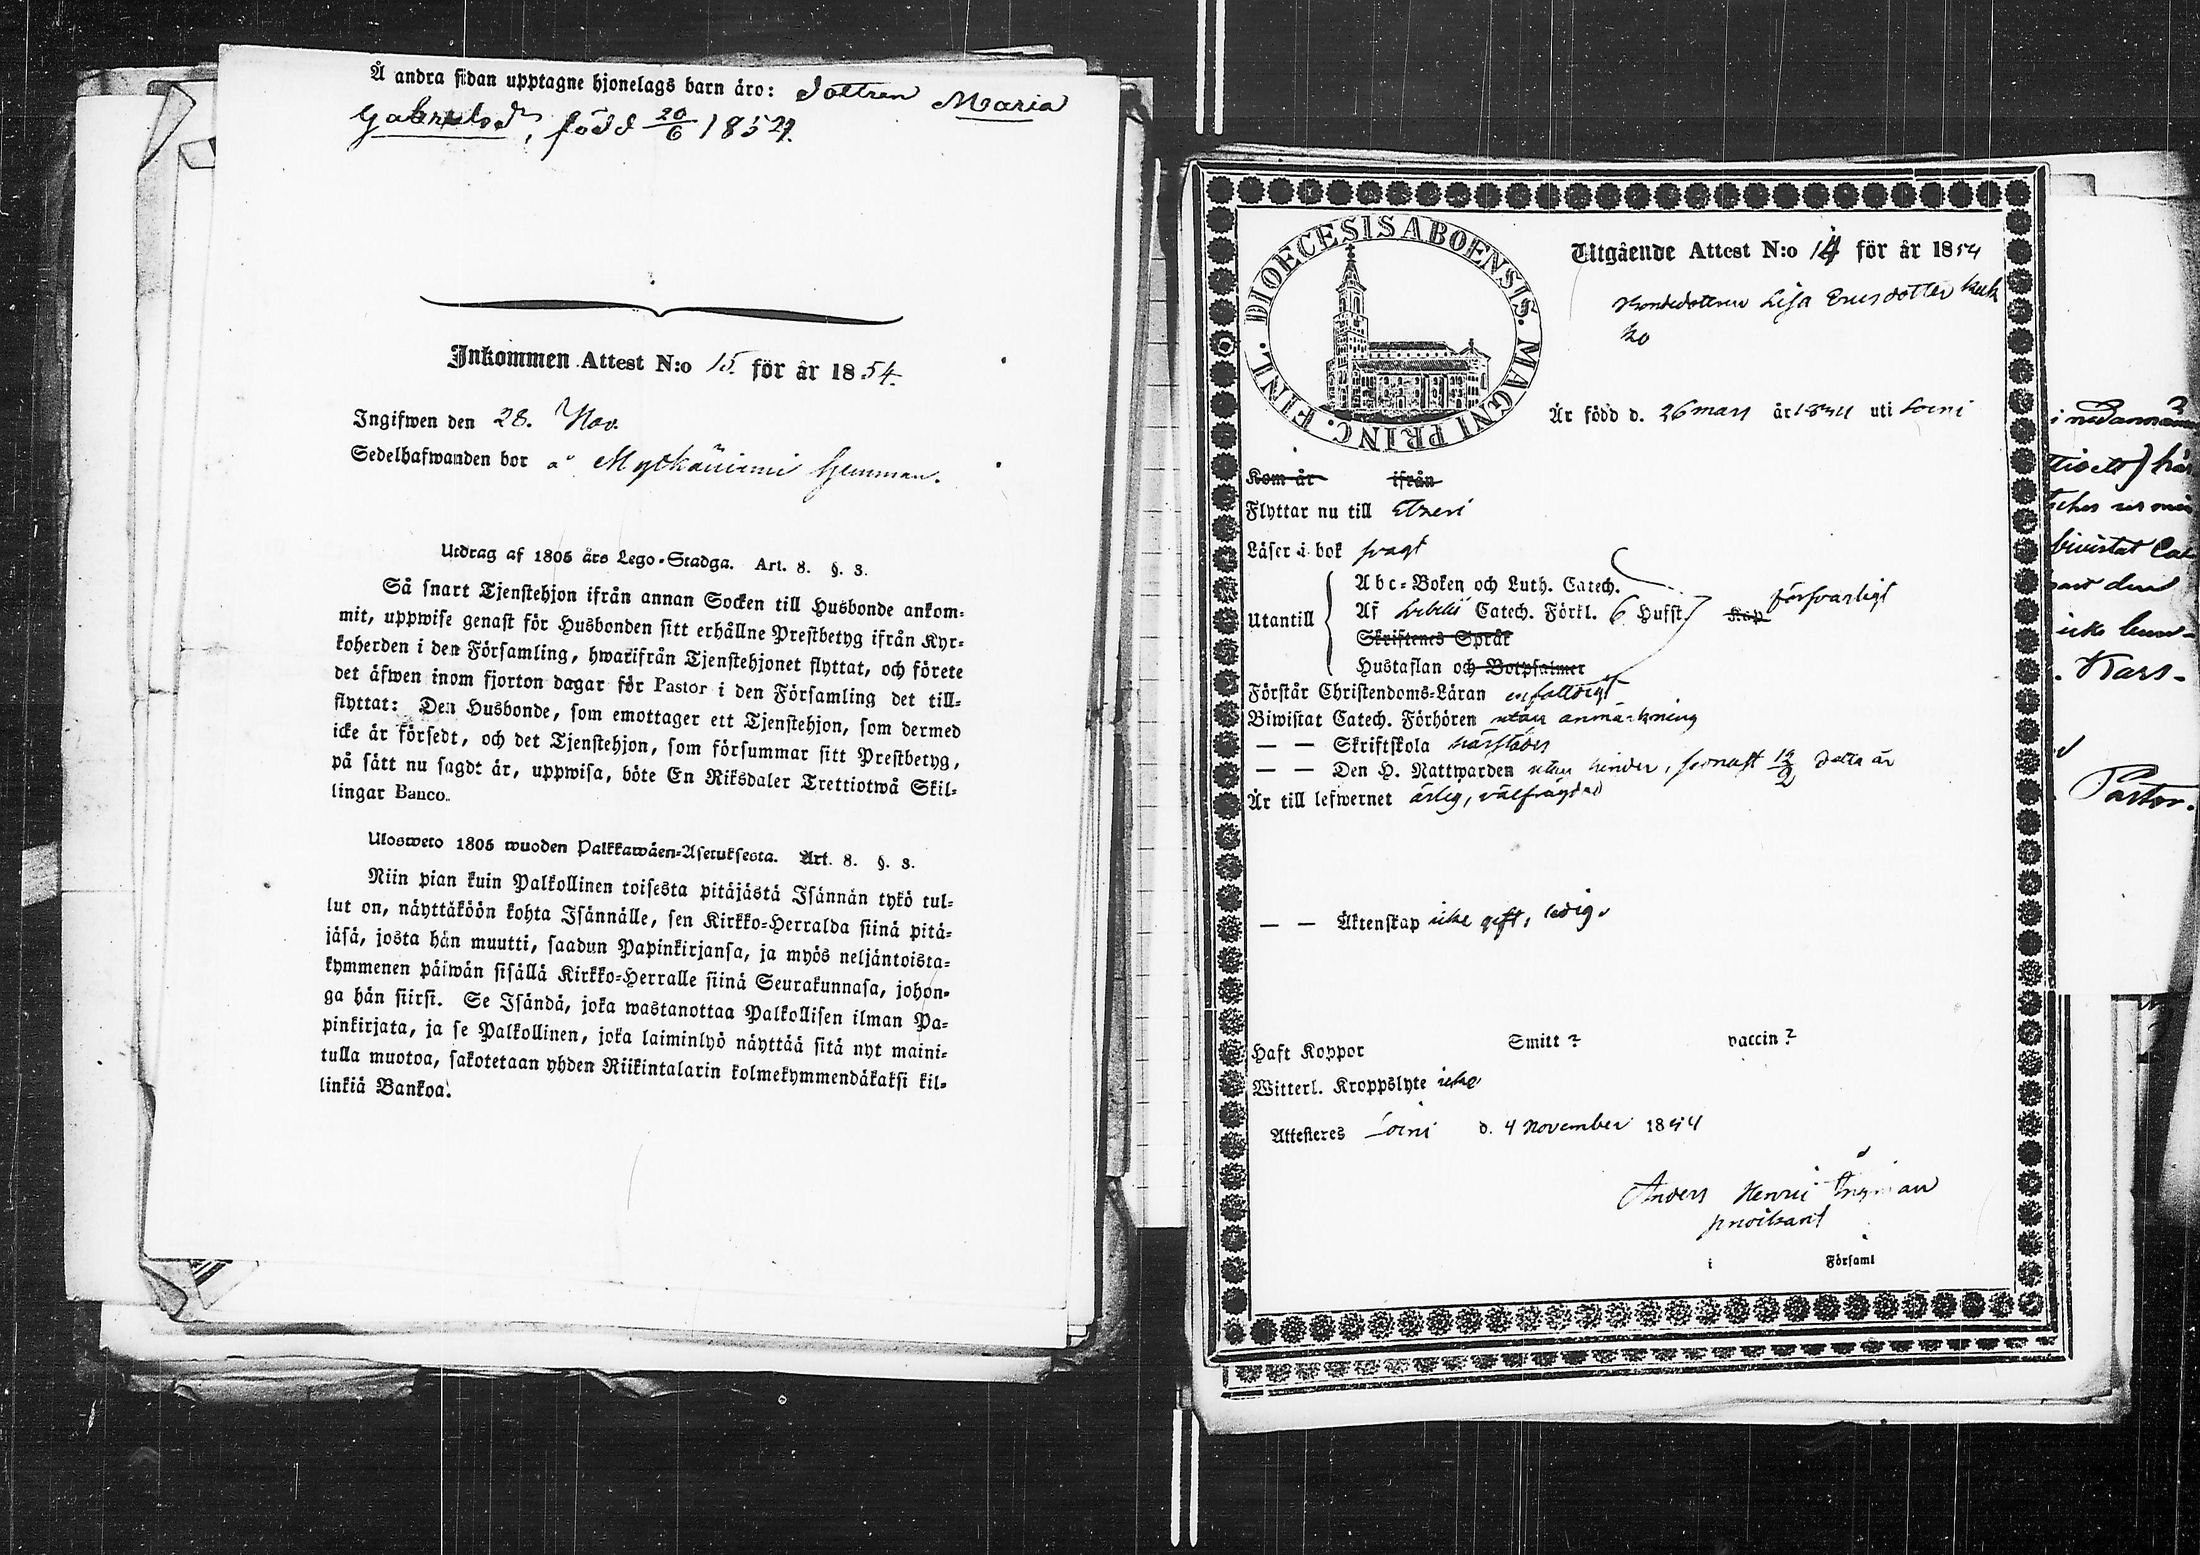 Å andra sidan upptagne hjonelags barn äro: dottren Maria
Gabrielsdr, född 20/6 1854.
Inkommen Attest N:o 15. för år 1854.
Ingifwen den 28. Nov.
Sedelhafwanden bor å hemman.
Utdrag af 1805 års Lego-Stadga. Art. 8. §. 3.
Så snart Tjenstehjon ifrån annan Socken till Husbonde ankom-
mit, uppwise genast för Husbonden sitt erhållne Prestbetyg ifrån Kyr-
koherden i den Församling, hwarifrån Tjenstehjonet flyttat, och förete
det äfwen inom fjorton dagar för Pastor i den Församling det till-
flyttat: Den Husbonde, som emottager ett Tjenstehjon, som dermed
icke är försedt, och det Tjenstehjon, som försummar sitt Prestbetyg,
på sätt nu sagdt är, uppwisa, böte En Riksdaler Trettiotwå Skil-
lingar Banco.
Ulosweto 1805 wuoden Palkkawäen-Asetuksesta. Art. 8. §. 3.
Niin pian kuin Palkollinen toisesta pitäjästä Isännän tykö tul-
lut on, näyttäköön kohta Isännälle, sen Kirkko-Herralda siinä pitä-
jäsä, josta hän muutti, saadun Papinkirjansa, ja myös neljäntoista-
kymmenen päiwän sisällä Kirkko-Herralle siinä Seurakunnasa, johon-
ga hän siirsi. Se Isändä, joka wastanottaa Palkollisen ilman Pa-
pinkirjata, ja se Palkollinen, joka laiminlyö näyttää sitä nyt maini-
tulla muotoa, sakotetaan yhden Riikintalarin kolmekymmendäkaksi kil-
linkiä Bankoa.
DIOECESIS ABOENSIS. MAGNI PRINC. FINL.
Utgående Attest N:o 14 för år 1854
Bondedottren Lisa Ericsdotter
Är född d. 26 mars år uti Loimi
Kom år ifrån
Flyttar nu till
Läser i bok svagt
Abc-Boken och Luth. Catech.
Utantill Af Catech. Förkl. 6 Husst. Kap försvarligt
Skriftenes Språk
Hustaflan och Botpsalmer
Förstår Christendoms-Läran enfaldigt
Biwistat Catech. Förhören utan anmärkning
— — Skriftskola härstädes
— — Den H. Nattwarden utan hinder, senast detta år
Är till lefwernet ärlig, välfrägdad
— — Äktenskap icke gift, ledig
Haft Koppor Smitt? vaccin?
Witterl. Kroppslyte icke
Attesteres Loimi d. 4 November 1854
Anders Henric Ingman
i Församl
Kars-
Pastor.